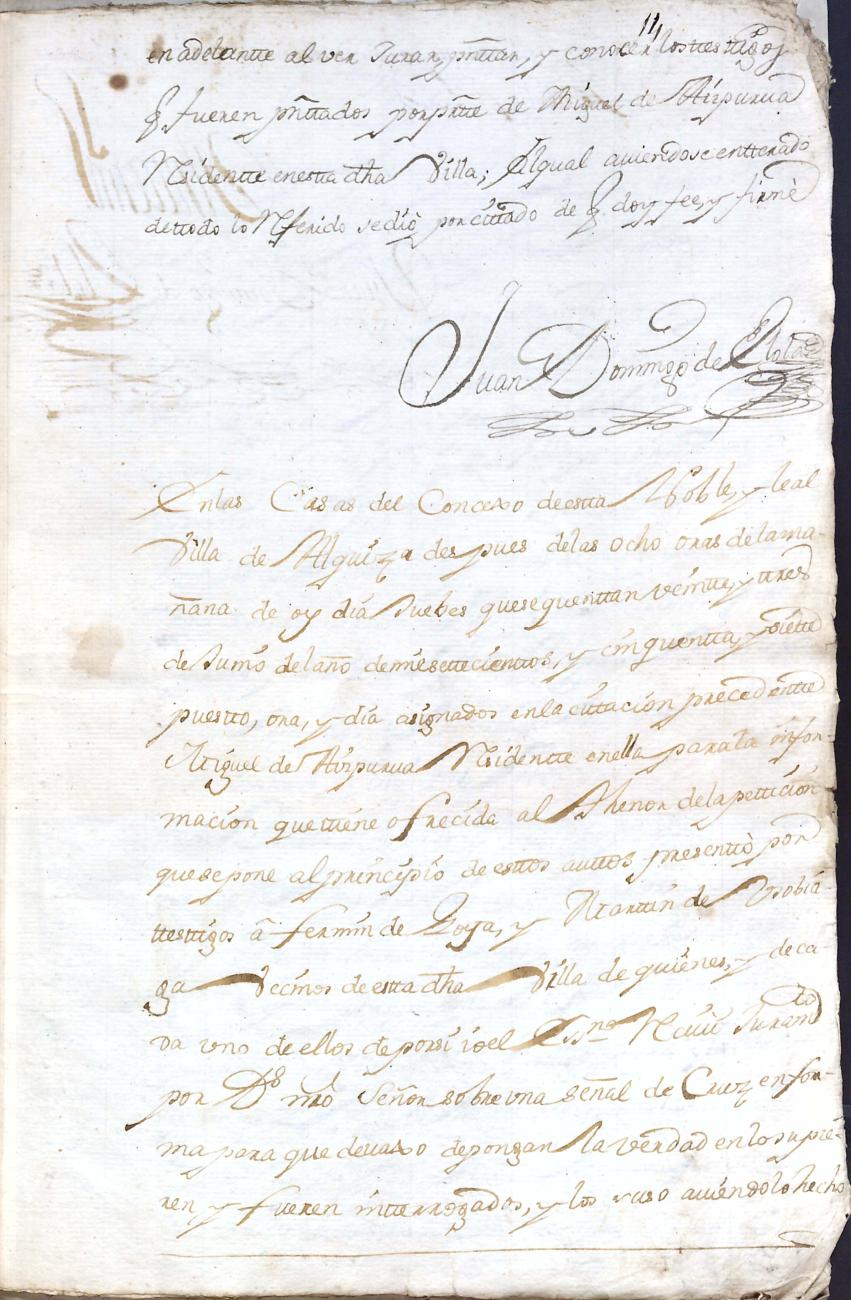 11
en adelantte al ver Jurar, pnttar, y conocer los ttesttigos
q fueren pnttados por partte de Miguel de Aizpurua
Rsidentte en estta dha Villa; El qual aviendose entterado
de ttodo lo Rferido se diò por cittado de q doy fee, y firmè
Juan Domingo de Elola
En las Casas del Concexo de estta Noble, y leal
Villa de Alquiza despues de las ocho oras de la ma-
ñana de oy dia Juebes que se quenttan veintte, y ttres
de Junio del año de mil settecienttos, y cinquentta, y siette
puestto, ora, y dia asignados en la cittacion precedentte
Miguel de Aizpurua Rsidentte en ella para la infor-
macion que ttiene ofrecida al thenor de la petticion
que se pone al principio de esttos auttos presenttò por
ttesttigos â fermin de Loya, y Marttin de Usobia-
ga Vecinos de estta dha Villa de quienes, y de ca
da uno de ellos de por si io el Essno Rcivi Juramto
por Ds nro Señor sobre una señal de Cruz en for-
ma para que devaxo depongan la verdad en lo supie-
ren y fueren intterrogados, y los suso aviendolo hecho